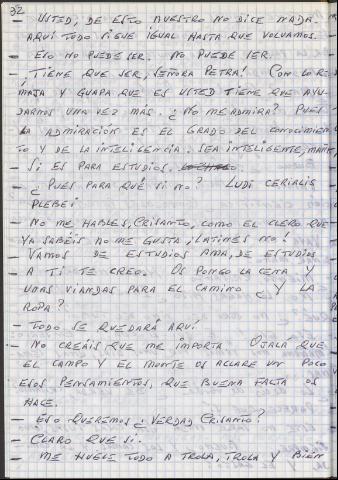 32
— USTED, DE ESTO NUESTRO NO DICE NADA.
AQUÍ TODO SIGUE IGUAL HASTA QUE VOLVAMOS.
— ESO NO PUEDE SER. NO PUEDE SER.
— ¡TIENE QUE SER, SEÑORA PETRA! CON LO RE-
MAJA Y GUAPA QUE ES USTED TIENE QUE AYU-
DARNOS UNA VEZ MÁS. ¿NO ME ADMIRA? PUES
LA ADMIRACIÓN ES EL GRADO DEL CONOCIMIEN-
TO Y DE LA INTELIGENCIA. SEA INTELIGENTE,
— SI ES PARA ESTUDIOS.
— ¿PUES PARA QUÉ SI NO? LUDI CERIALIS
PLEBEI
— NO ME HABLES, CRISANTO, COMO EL CLERO QUE
YA SABÉIS NO ME GUSTA ¡LATINES NO!
— VAMOS DE ESTUDIOS AMA, DE ESTUDIOS
— A TI TE CREO. OS PONGO LA CENA Y
UNAS VIANDAS PARA EL CAMINO ¿Y LA
ROPA?
— TODO SE QUEDARÁ AQUÍ
— NO CREÁIS QUE ME IMPORTA. OJALÁ QUE
EL CAMPO Y EL MONTE OS ACLARE UN POCO
ESOS PENSAMIENTOS, QUE BUENA FALTA OS
HACE.
— ESO QUEREMOS ¿VERDAD CRISANTO?
— CLARO QUE SI.
— ME HUELE TODO A TROLA, TROLA Y BIEN